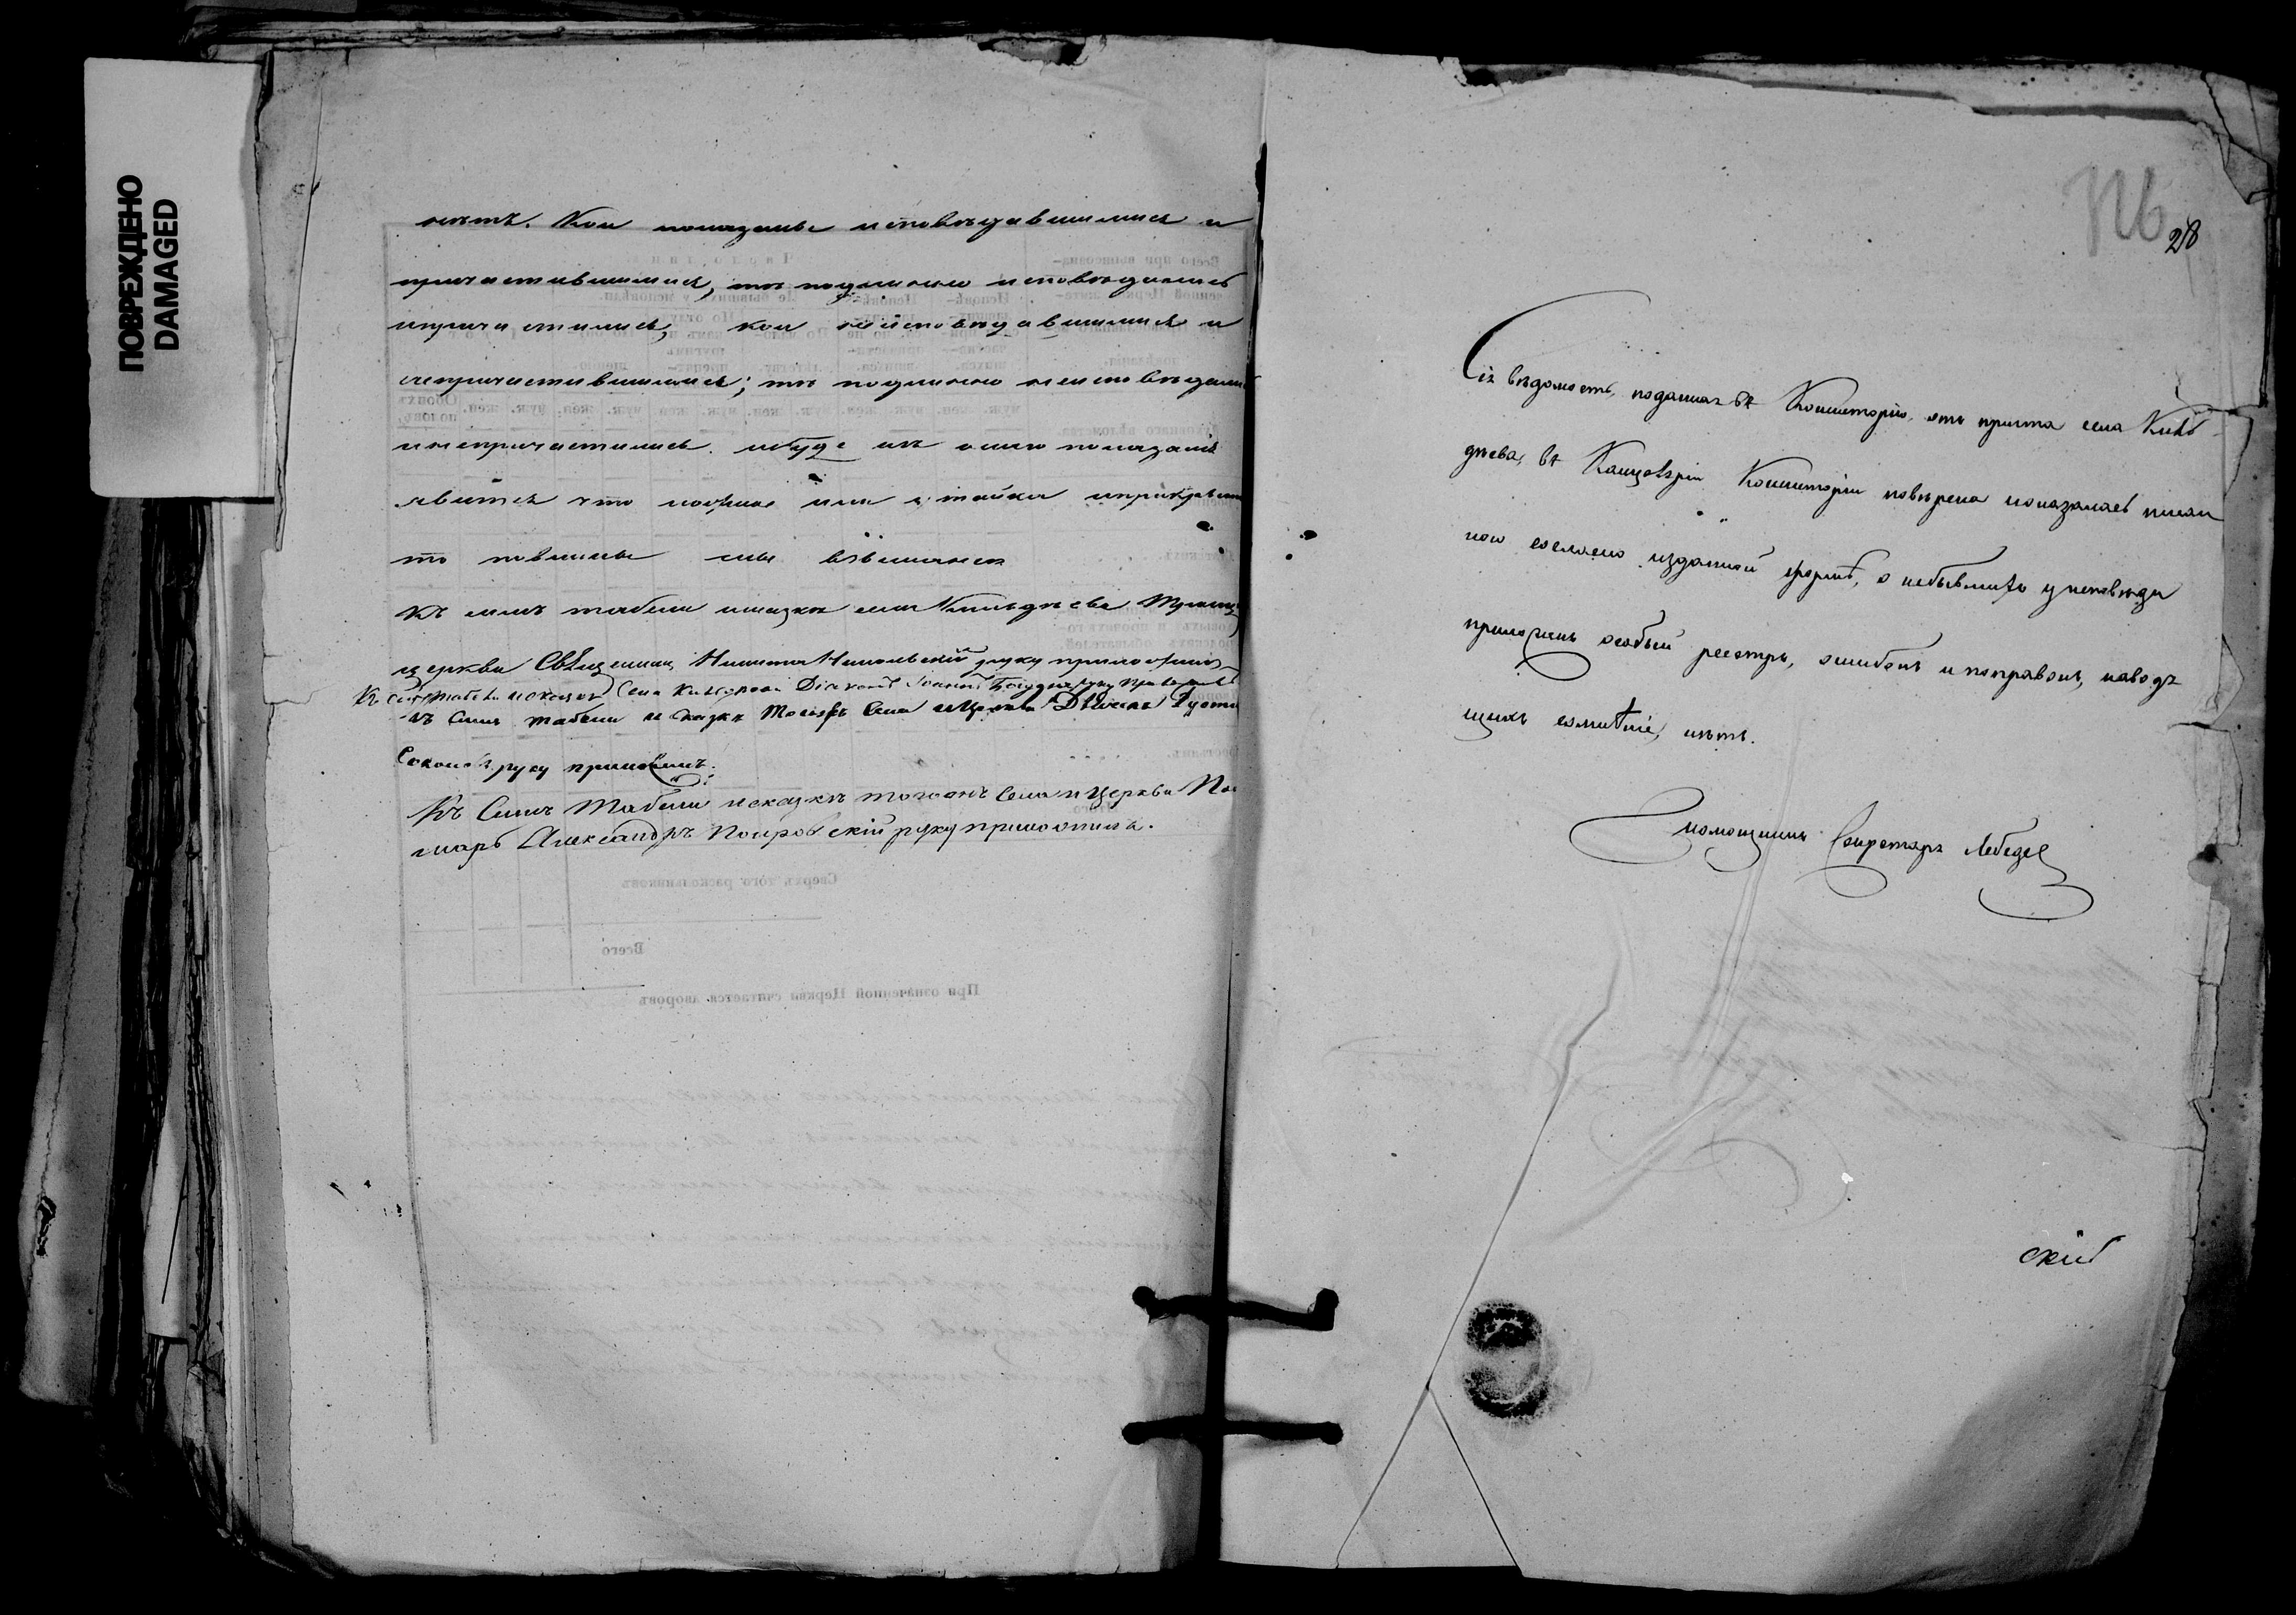 ПОВРЕЖДЕНО
DAMAGED
нѣтъ. Кои показаны исповѣдавшимися и
причастившимися, тѣ подлинно исповѣдались
и причастились, кои неисповѣдавшимися и
непричастившимися; тѣ подлинно неисповѣдались
и непричастились. Ибуде въ семъ показаніи
явится что ложное или утайка и прикрытіе
то повинны
Къ симъ табели и сказкѣ села
церкви Священникъ Никита Никольскій руку приложилъ
Къ симъ табели и сказкѣ села Діаконъ Іоаннъ руку приложилъ
Къ симъ табели и сказкѣ тогожъ села и церкви Дьячекъ
Соколовъ руку приложилъ.
Къ симъ табели и сказкѣ тогожъ села и церкви По
марь Александръ Покровскій руку приложилъ.
Сверхъ того раскольниковъ
Всего
При означенной Церкви считается дворовъ
28
Сія вѣдомость, поданная въ Консисторію, отъ причта села
въ Канцеляріи Консисторіи повѣрена и оказалась писан
ною согласно изданной формѣ, о небывшихъ у исповѣди
приложенъ особый реестръ, ошибокъ и поправокъ, наводя
щихъ сомнѣніе, нѣтъ.
помощникъ Секретаря Лебедев
скій